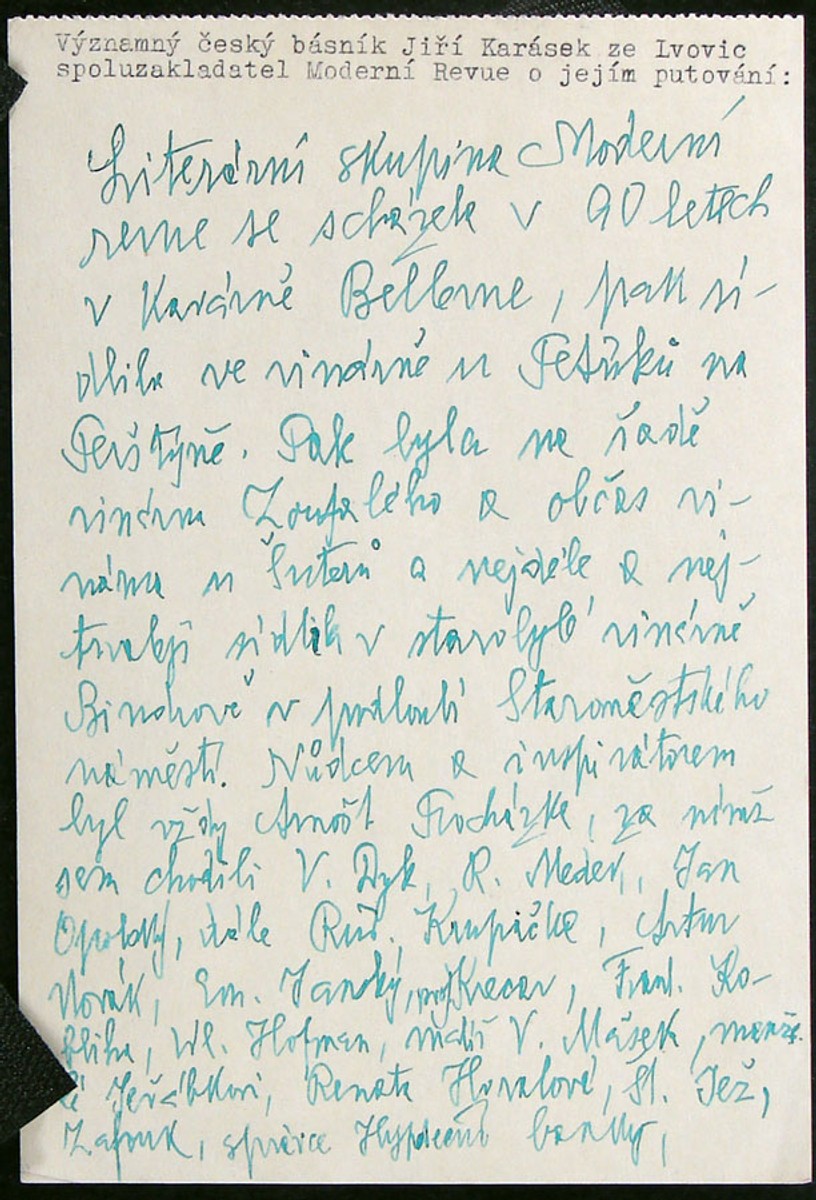 Významný český básník Jiří Karásek ze Lvovic
spoluzakladatel Moderní Revue o jejím putování:
Literární skupina Moderní
revue se scházela v 90 letech
v Kavárně Bellevue, pak sí-
dlila ve vinárně u Petříků na
Perštýně. Pak byla na řadě
vinárna Zoufalého a občas vi-
nárna u Šuterů a nejdéle a nej-
trvaleji sídlila v starobylé vinárně
Bindrově v podloubí Staroměstského
náměstí. Vůdcem a inspirátorem
byl vždy Arnošt Procházka, za nímž
sem chodili V. Dyk, R. Medek, Jan
Opolský, dále Rud. Krupička, Artur
Novák, Em. Janský, prof. Krecar, Frant. Ko-
bliha, Vl. Hofman, malíř V. Mašek, manže-
lé Jeřábkovi, Renata Horalová, St. Jež,
správce Hypoteční banky,